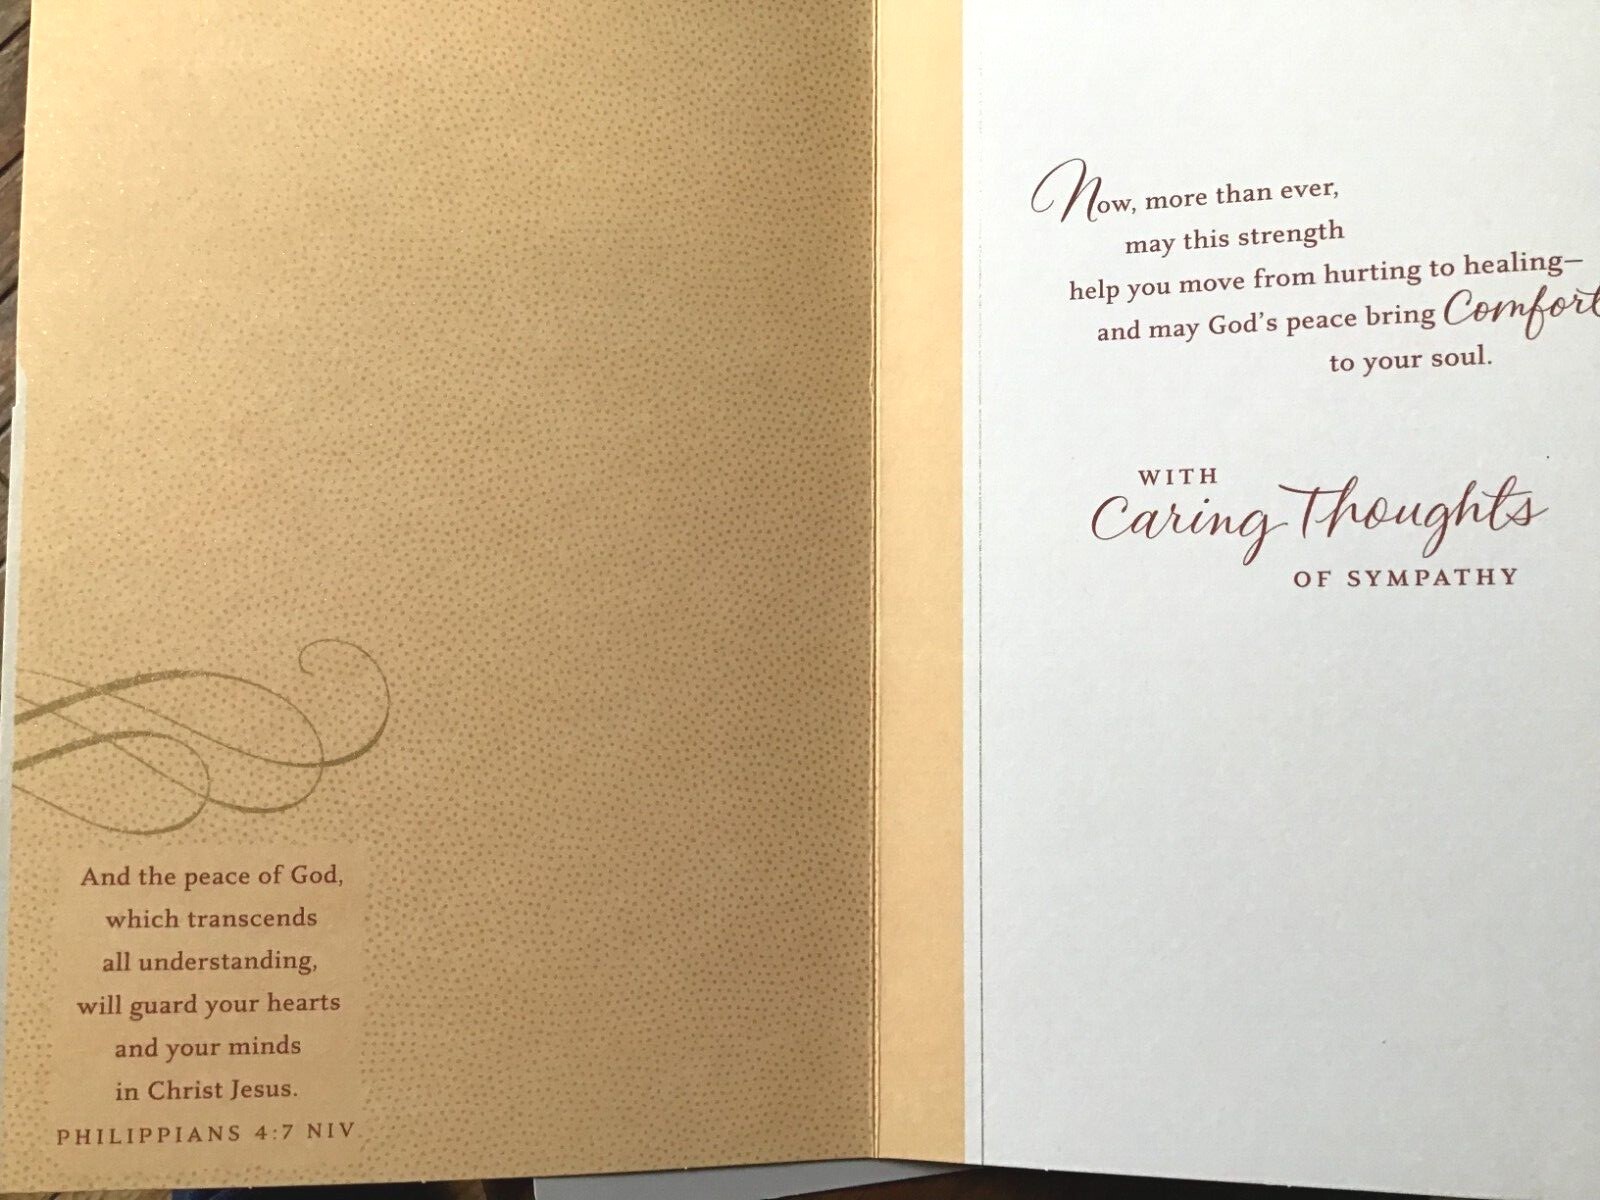 And the peace of God,
which transcends
all understanding,
will guard your hearts
and your minds
in Christ Jesus.
PHILIPPIANS 4:7 NIV
Now, more than ever,
may this strength
help you move from hurting to healing—
and may God's peace bring Comfort
to your soul.
WITH
Caring Thoughts
OF SYMPATHY